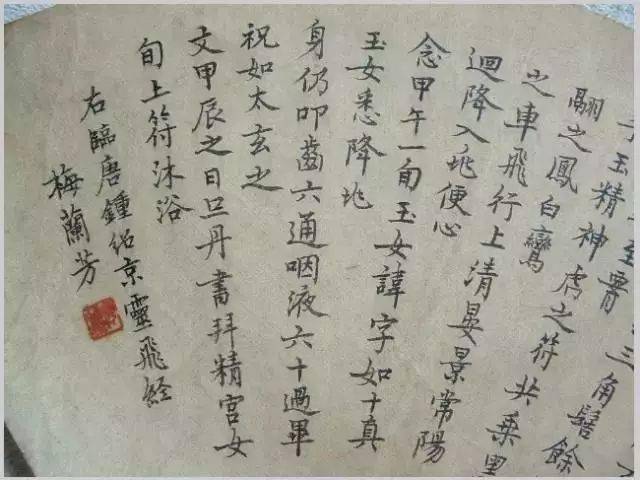 至霄三角髻餘
玉精神虎之符共乘黑
翮之鳳白鸞
之車飛行上清晏景常陽
迴降入兆便心
念甲午一旬玉女諱字如十真
玉女悉降兆
身仍叩齒六通咽液六十過畢
祝如太玄之
文甲辰之日旦丹書拜精宮女
旬上符沐浴
右臨唐鍾紹京靈飛経
梅蘭芳